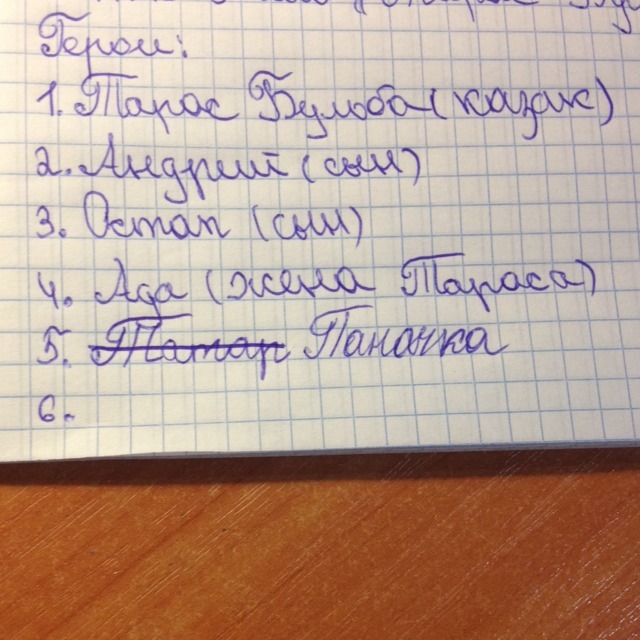 Герои:
1. Тарас Бульба (казак)
2. Андрий (сын)
3. Остап (сын)
4. Ада (жена Тараса)
5. Татар Паночка
6.